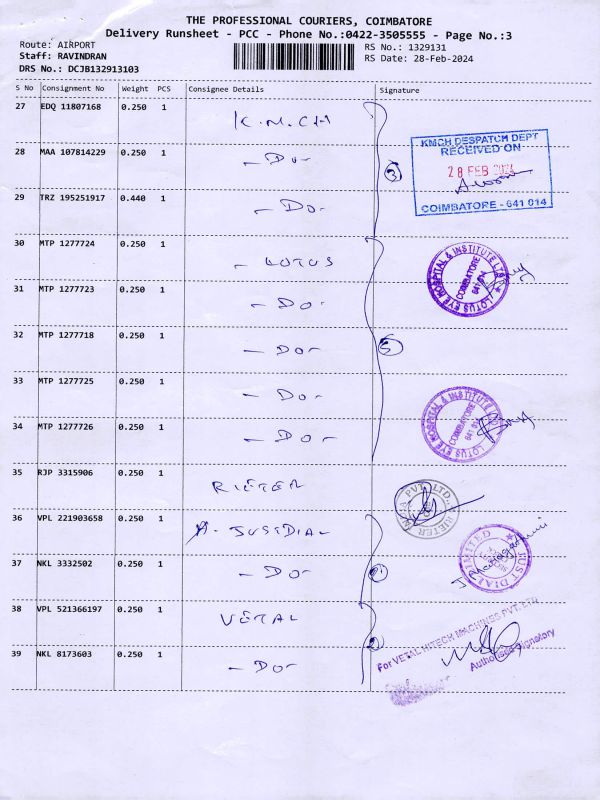 THE PROFESSIONAL COURIERS, COIMBATORE
Delivery Runsheet - PCC - Phone No.:0422-3505555 - Page No.:3
Route: AIRPORT
RS No.: 1329131
Staff: RAVINDRAN
RS Date: 28-Feb-2024
DRS No.: DCJB132913103
S No Consignment No Weight PCS Consignee Details Signature
27 EDQ 11807168 0.250 1 K.M.C.H
KMCH DESPATCH DEPT
RECEIVED ON
28 FEB 2024
COIMBATORE - 641 014
28 MAA 107814229 0.250 1 - Do -
3
29 TRZ 195251917 0.440 1 - Do -
30 MTP 1277724 0.250 1 - LOTUS
LOTUS EYE HOSPITAL & INSTITUTE LTD
COIMBATORE
641 014
31 MTP 1277723 0.250 1 - Do -
32 MTP 1277718 0.250 1 - Do -
5
33 MTP 1277725 0.250 1 - Do -
34 MTP 1277726 0.250 1 - Do -
LOTUS EYE HOSPITAL & INSTITUTE LTD
COIMBATORE
641 014
35 RJP 3315906 0.250 1 RIETER
RIETER INDIA PVT. LTD.
36 VPL 221903658 0.250 1 A. JUSTDIAL
JUST DIAL LIMITED
37 NKL 3332502 0.250 1 - Do -
38 VPL 521366197 0.250 1 VETAL
2
For VETAL HITECH MACHINES PVT. LTD
Authorised Signatory
39 NKL 8173603 0.250 1 - Do -